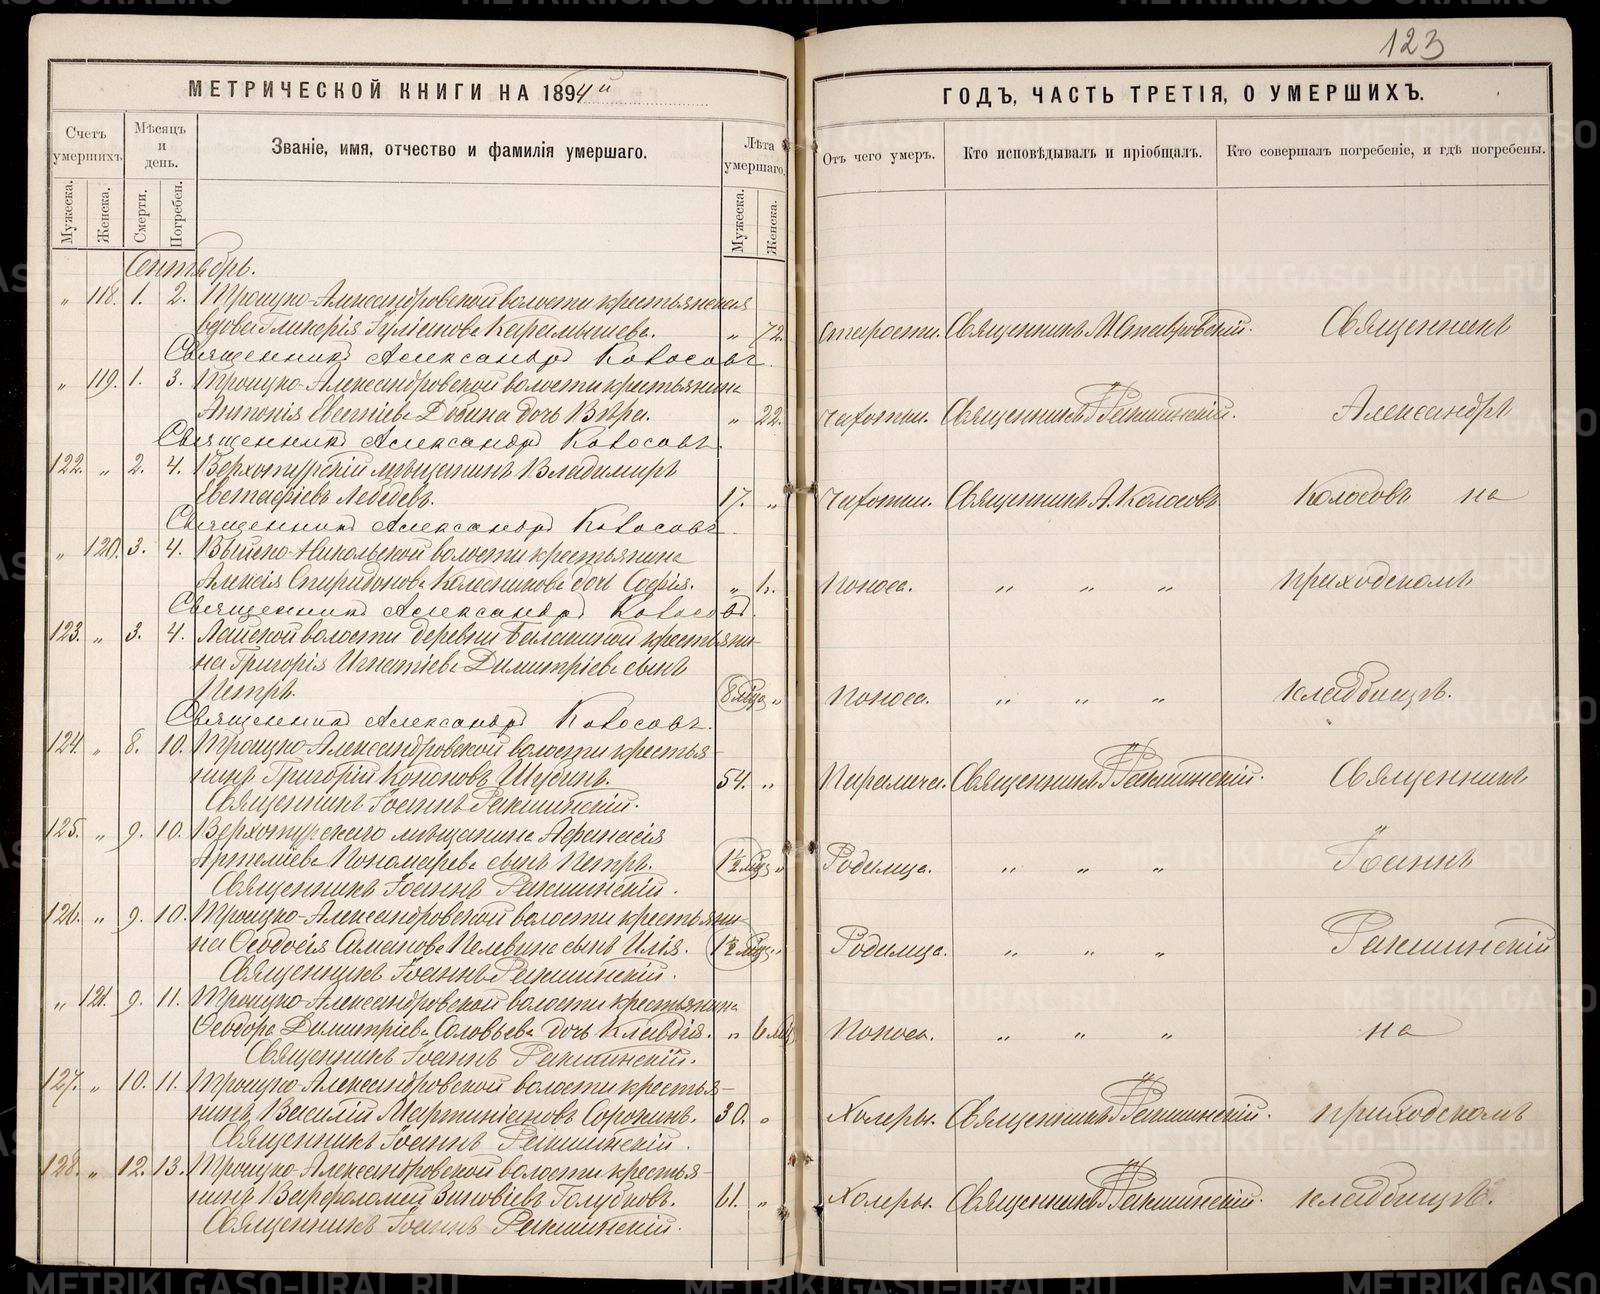 123
МЕТРИЧЕСКОЙ КНИГИ НА 1894й
ГОДЪ, ЧАСТЬ ТРЕТІЯ, О УМЕРШИХЪ.
Счетъ умершихъ
Мѣсяцъ и день.
Званіе, имя, отчество и фамилія умершаго.
Лѣта умершаго.
Отъ чего умеръ.
Кто исповѣдывалъ и пріобщалъ.
Кто совершалъ погребеніе, и гдѣ погребены.
Мужеска.
Женска.
Смерти.
Погребен.
Мужеска.
Женска.
Сентябрь.
„ 118. 1. 2. Троицко-Александровской волости крестьянская
вдова Гликерія Іуліанова Карамышева. „ 72. старости. Священникъ М. Ставровскій. Священникъ
Священникъ Александръ Колосовъ.
„ 119. 1. 3. Троицко-Александровской волости крестьянина
Антонія Евгеніева Добина дочь Вѣра. „ 22. чахотки. Священникъ І. Ракшинскій. Александръ
Священникъ Александръ Колосовъ.
122. „ 2. 4. Верхотурскій мѣщанинъ Владимиръ
Евстафіевъ Лебедевъ. 17. „ чахотки. Священникъ А. Колосовъ Колосовъ на
Священникъ Александръ Колосовъ.
„ 120. 3. 4. Выйско-Никольской волости крестьянина
Алексія Спиридонова Колесникова дочь Софія. „ 1. поноса. „ „ „ приходскомъ
Священникъ Александръ Колосовъ.
123. „ 3. 4. Лайской волости деревни Балакиной крестьяни-
на Григорія Игнатіева Димитріева сынъ
Петръ. 8 мѣсц. „ поноса. „ „ „ кладбищѣ.
Священникъ Александръ Колосовъ.
124. „ 8. 10. Троицко-Александровской волости крестья-
нинъ Григорій Кононовъ Шубинъ. 54. „ Паралича. Священникъ І. Ракшинскій. Священникъ
Священникъ Іоаннъ Ракшинскій.
125. „ 9. 10. Верхотурскаго мѣщанина Афанасія
Артеміева Пономарева сынъ Петръ. 1½ мѣсц. „ Родимца. „ „ „ Іоаннъ
Священникъ Іоаннъ Ракшинскій.
126. „ 9. 10. Троицко-Александровской волости крестьяни-
на Ѳеодосія Пелевина сынъ Илія. 1½ мѣсц. „ Родимца. „ „ „ Ракшинскій
Священникъ Іоаннъ Ракшинскій.
„ 121. 9. 11. Троицко-Александровской волости крестьянина
Ѳеодора Димитріева Соловьева дочь Клавдія. „ 6 мѣсц. Поноса. „ „ „ на
Священникъ Іоаннъ Ракшинскій.
127. „ 10. 11. Троицко-Александровской волости крестья-
нинъ Василій Мартиніановъ Сорокинъ. 30. „ Холеры. Священникъ І. Ракшинскій. приходскомъ
Священникъ Іоаннъ Ракшинскій.
128. „ 12. 13. Троицко-Александровской волости крестья-
нинъ Варфоломей Зиновіевъ Голубковъ. 61. „ Холеры. Священникъ І. Ракшинскій. кладбищѣ.
Священникъ Іоаннъ Ракшинскій.
METRIKI.GASO-URAL.RU